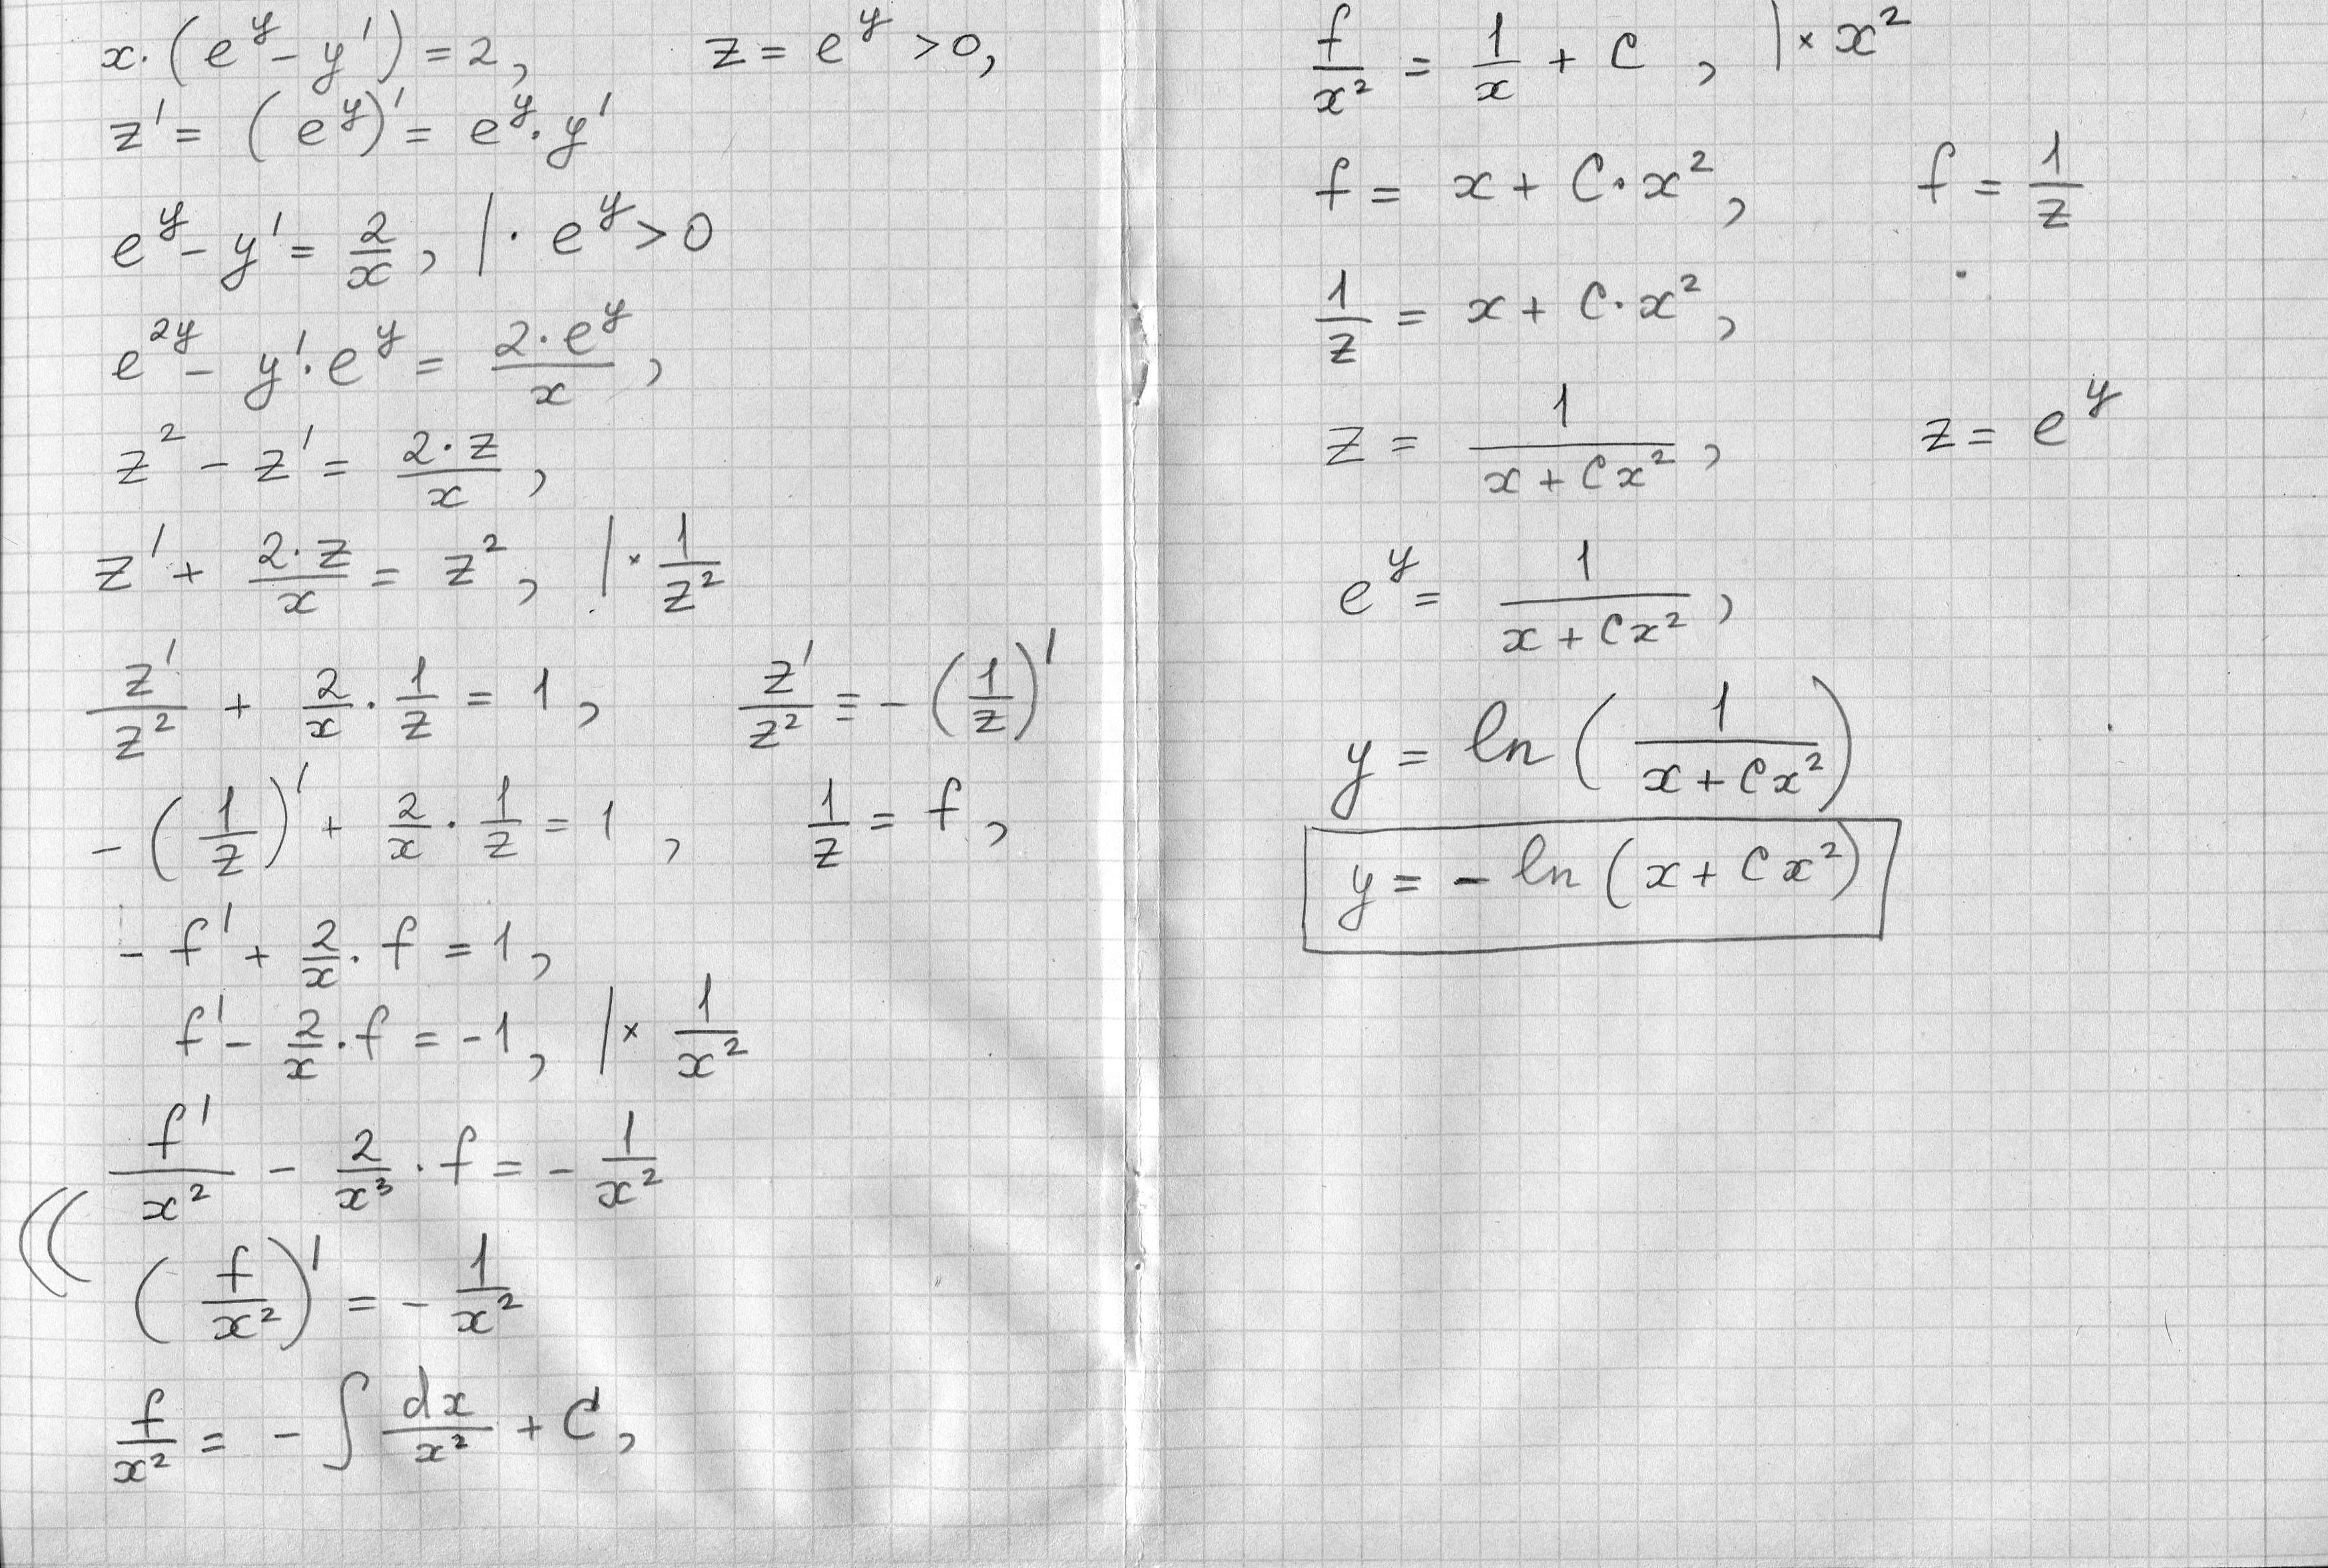 x·(e^y − y') = 2, z = e^y > 0,
z' = (e^y)' = e^y · y'
e^y − y' = 2/x, | · e^y > 0
e^(2y) − y'·e^y = (2·e^y)/x,
z² − z' = (2·z)/x,
z' + (2·z)/x = z², | × 1/z²
z'/z² + 2/x · 1/z = 1, z'/z² ≡ −(1/z)'
−(1/z)' + 2/x · 1/z = 1, 1/z = f,
− f' + 2/x · f = 1,
f' − 2/x · f = −1, | × 1/x²
f'/x² − 2/x³ · f = − 1/x²
(f/x²)' = − 1/x²
f/x² = − ∫ dx/x² + C,
f/x² = 1/x + C, | × x²
f = x + C·x², f = 1/z
1/z = x + C·x²,
z = 1/(x + Cx²), z = e^y
e^y = 1/(x + Cx²),
y = ln (1/(x + Cx²))
y = − ln (x + Cx²)